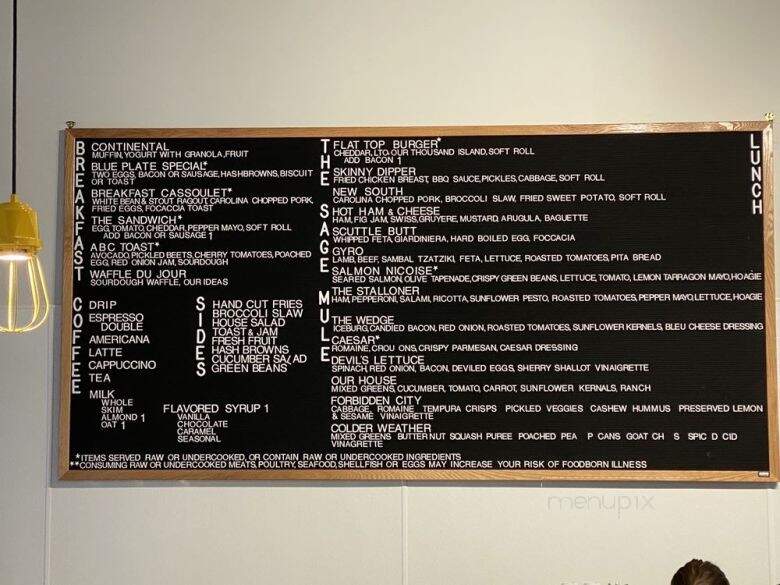 BREAKFAST
CONTINENTAL
MUFFIN, YOGURT WITH GRANOLA, FRUIT
BLUE PLATE SPECIAL*
TWO EGGS, BACON OR SAUSAGE, HASHBROWNS, BISCUIT
OR TOAST
BREAKFAST CASSOULET*
WHITE BEAN & STOUT RAGOUT, CAROLINA CHOPPED PORK,
FRIED EGGS, FOCACCIA TOAST
THE SANDWICH*
EGG, TOMATO, CHEDDAR, PEPPER MAYO, SOFT ROLL
ADD BACON OR SAUSAGE 1
ABC TOAST*
AVOCADO, PICKLED BEETS, CHERRY TOMATOES, POACHED
EGG, RED ONION JAM, SOURDOUGH
WAFFLE DU JOUR
SOURDOUGH WAFFLE, OUR IDEAS
COFFEE
DRIP
ESPRESSO
DOUBLE
AMERICANA
LATTE
CAPPUCCINO
TEA
MILK
WHOLE
SKIM
ALMOND 1
OAT 1
SIDES
HAND CUT FRIES
BROCCOLI SLAW
HOUSE SALAD
TOAST & JAM
FRESH FRUIT
HASH BROWNS
CUCUMBER SALAD
GREEN BEANS
FLAVORED SYRUP 1
VANILLA
CHOCOLATE
CARAMEL
SEASONAL
THE SAGE MULE
LUNCH
FLAT TOP BURGER*
CHEDDAR, LTO, OUR THOUSAND ISLAND, SOFT ROLL
ADD BACON 1
SKINNY DIPPER
FRIED CHICKEN BREAST, BBQ SAUCE, PICKLES, CABBAGE, SOFT ROLL
NEW SOUTH
CAROLINA CHOPPED PORK, BROCCOLI SLAW, FRIED SWEET POTATO, SOFT ROLL
HOT HAM & CHEESE
HAM, FIG JAM, SWISS, GRUYERE, MUSTARD, ARUGULA, BAGUETTE
SCUTTLE BUTT
WHIPPED FETA, GIARDINIERA, HARD BOILED EGG, FOCCACIA
GYRO
LAMB, BEEF, SAMBAL TZATZIKI, FETA, LETTUCE, ROASTED TOMATOES, PITA BREAD
SALMON NICOISE*
SEARED SALMON, OLIVE TAPENADE, CRISPY GREEN BEANS, LETTUCE, TOMATO, LEMON TARRAGON MAYO, HOAGIE
THE STALLONER
HAM, PEPPERONI, SALAMI, RICOTTA, SUNFLOWER PESTO, ROASTED TOMATOES, PEPPER MAYO, LETTUCE, HOAGIE
THE WEDGE
ICEBURG, CANDIED BACON, RED ONION, ROASTED TOMATOES, SUNFLOWER KERNELS, BLEU CHEESE DRESSING
CAESAR*
ROMAINE, CROU ONS, CRISPY PARMESAN, CAESAR DRESSING
DEVIL'S LETTUCE
SPINACH, RED ONION, BACON, DEVILED EGGS, SHERRY SHALLOT VINAIGRETTE
OUR HOUSE
MIXED GREENS, CUCUMBER, TOMATO, CARROT, SUNFLOWER KERNALS, RANCH
FORBIDDEN CITY
CABBAGE, ROMAINE TEMPURA CRISPS PICKLED VEGGIES CASHEW HUMMUS PRESERVED LEMON
& SESAME VINAIGRETTE
COLDER WEATHER
MIXED GREENS BUTTERNUT SQUASH PUREE POACHED PEA P CANS GOAT CH S SPIC D CID
VINAGRETTE
*ITEMS SERVED RAW OR UNDERCOOKED, OR CONTAIN RAW OR UNDERCOOKED INGREDIENTS
**CONSUMING RAW OR UNDERCOOKED MEATS, POULTRY, SEAFOOD, SHELLFISH OR EGGS MAY INCREASE YOUR RISK OF FOODBORN ILLNESS
menupix